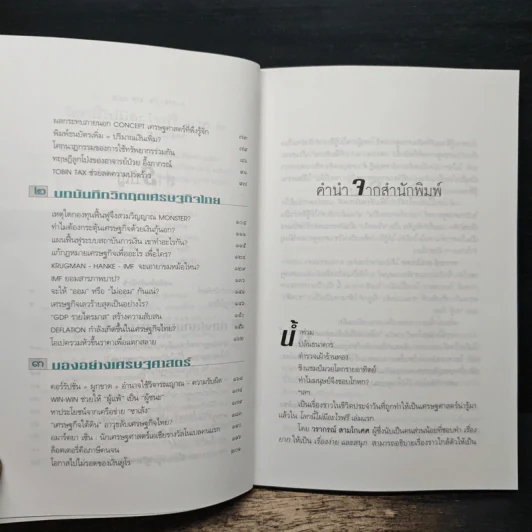 ผลกระทบภายนอก CONCEPT เศรษฐศาสตร์ที่พึงรู้จัก
พิมพ์ธนบัตรเพิ่ม = ปริมาณเงินเพิ่ม?
โศกนาฏกรรมของการใช้ทรัพยากรร่วมกัน
ทฤษฎีลูกโป่งของอาจารย์ป๋วย อึ๊งภากรณ์
TOBIN TAX ช่วยลดความปวดร้าว
๒ บทบันทึกวิกฤตเศรษฐกิจไทย
เหตุใดกองทุนฟื้นฟูจึงสวมวิญญาณ MONSTER?
ทำไมต้องกระตุ้นเศรษฐกิจด้วยเงินกู้นอก?
แผนฟื้นฟูระบบสถาบันการเงิน เขาทำอะไรกัน?
แก้กฎหมายเศรษฐกิจเพื่ออะไร เพื่อใคร?
KRUGMAN - HANKE - IMF จะเอายาขมหม้อไหน?
IMF ยอมสารภาพบาป?
จะให้ "ออม" หรือ "ไม่ออม" กันแน่?
เศรษฐกิจเลวร้ายสุดเป็นอย่างไร?
"GDP รายไตรมาส" สร้างความสับสน
DEFLATION กำลังเกิดขึ้นในเศรษฐกิจไทย?
โละปครามหัวขึ้นราคาเพื่อแตกสลาย
๓ มองอย่างเศรษฐศาสตร์
คอร์รัปชั่น = ผูกขาด + อำนาจใช้วิจารณญาณ - ความรับผิด
WIN-WIN ช่วยให้ "ผู้แพ้" เป็น "ผู้ชนะ"
หาประโยชน์จากเครือข่าย "ขาเล้ง"
"เศรษฐกิจใต้ดิน" อาวุธลับเศรษฐกิจไทย?
อมาร์ตยา เซ็น : นักเศรษฐศาสตร์เอเชียรางวัลโนเบลคนแรก
ล็อตเตอรี่คือภาษีคนจน
โอกาสไปไม่รอดของเงินยูโร
คำนำ จากสำนักพิมพ์
น้ำท่วม
ปล้นธนาคาร
ตำรวจเฝ้าร้านทอง
ชิงแชมป์มวยโลกรายอาทิตย์
ทำไมมนุษย์จึงชอบโกหก?
ฯลฯ
เป็นเรื่องราวในชีวิตประจำวันที่ถูกทำให้เป็นเศรษฐศาสตร์น่ารู้มา
แล้วใน โลกนี้ไม่มีอะไรฟรี เล่มแรก
โดย วรากรณ์ สามโกเศศ ผู้ซึ่งนับเป็นคนส่วนน้อยที่ชอบทำ เรื่อง
ยาก ให้เป็น เรื่องง่าย และสนุก สามารถอธิบายเรื่องราวใกล้ตัวให้เป็น